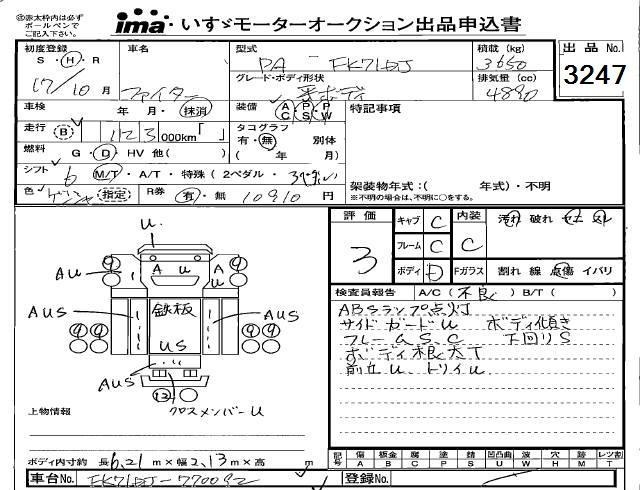 ②赤太枠内は必ず
ボールペンで
ご記入下さい。
ima いすゞモーターオークション出品申込書
初度登録 車名 型式 積載 (kg) 出品No.
S・H・R PA - FK71DJ 3650
17/10月 ファイター グレード・ボディ形状 平ボディ 排気量 (cc) 4890
3247
車検 年 月・抹消 装備 AC PS PW 特記事項
走行 B 123 000km「 」 タコグラフ 有・無 別体
燃料 G・D・HV 他( ) ( 年 月)
シフト 6 M/T・A/T・特殊(2ペダル・3ペダル) 架装物年式:( 年式)・不明
※不明の場合は、不明に○をする。
色 指定 R券 有・無 10910円
評価 3
キャブ C 内装 C 汚れ 破れ ヤニ スレ
フレーム C
ボディ D Fガラス 割れ 線 点傷 イバリ
検査員報告 A/C(不良) B/T( )
ABSランプ点灯
サイドガードU ボディ傾き
フレームS、C 下回りS
ボディ根太T
前立U、トリイU
U
AU A U U
AUS 鉄板 AUS
US
AUS
クロスメンバーU
上物情報
ボディ内寸約 長6.21m×幅2.13m×高 m
記号 傷A 板金B 腐C 塗P 錆S 凹凸曲U 波W 穴H 跡M レツ割T
車台No. FK71DJ-770092 登録No.